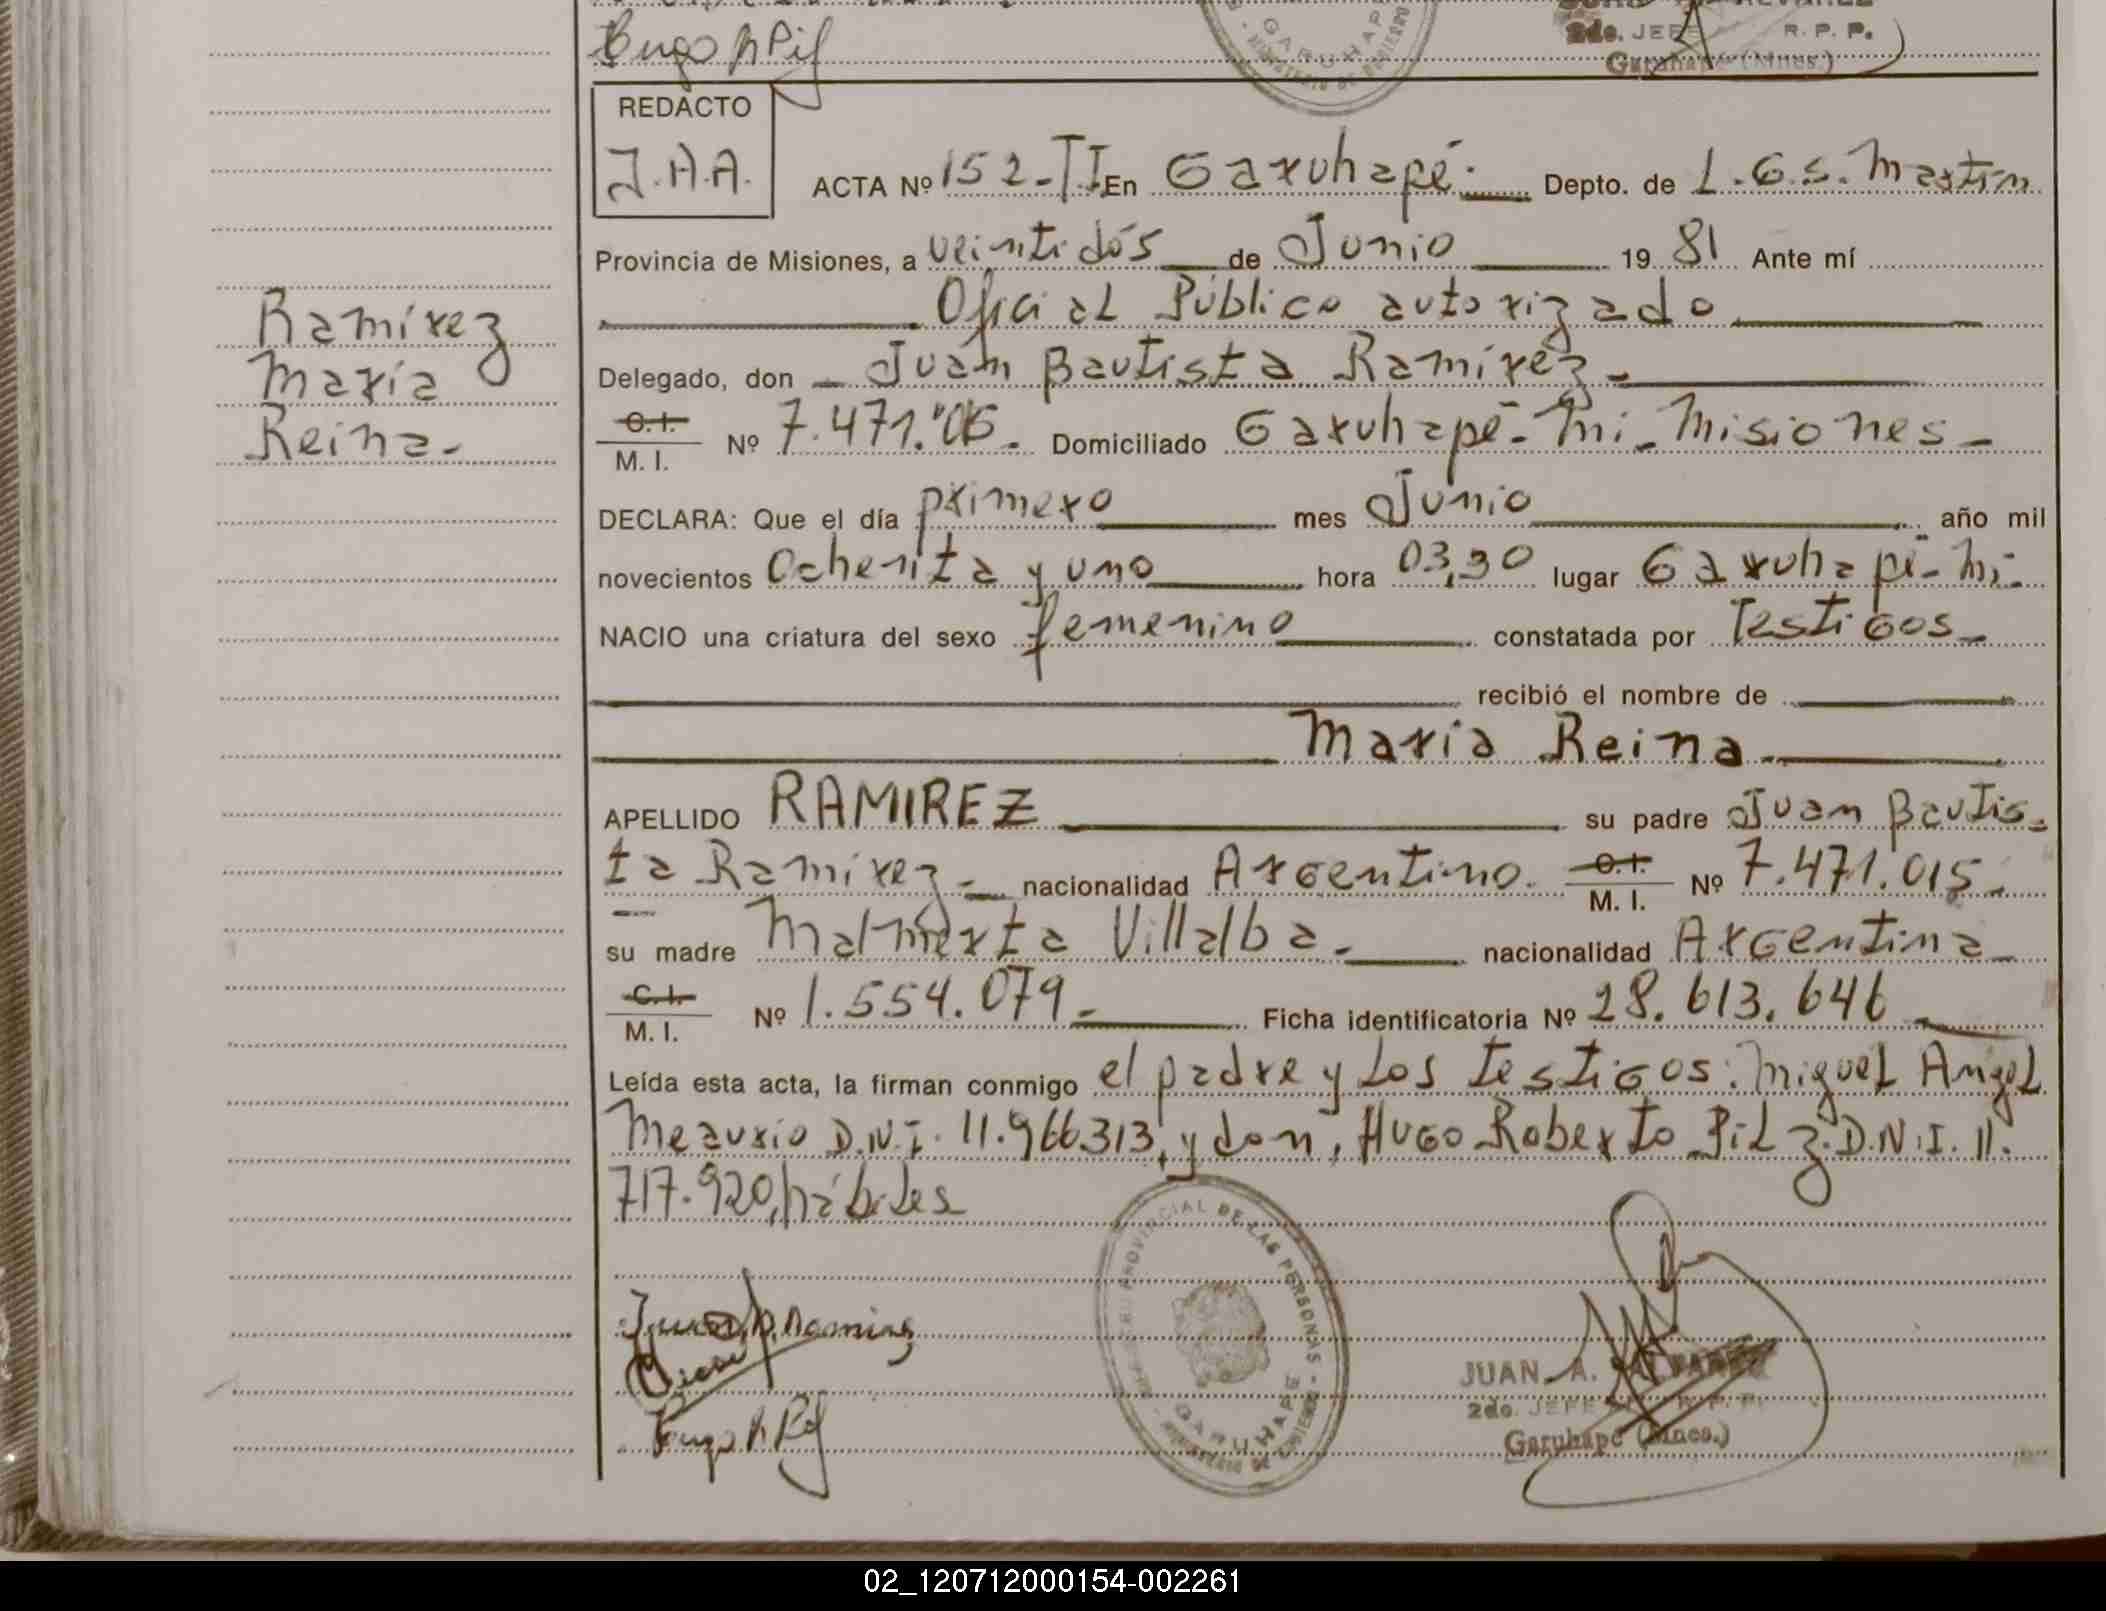 Hugo R Pilz
2do. JEFE R. P. P.
Garuhapé (Mnes.)
REDACTO
J.A.A.
ACTA Nº 152-TI. En Garuhapé. Depto. de L.G.S. Martin
Provincia de Misiones, a veintidós de Junio 1981 Ante mí
Oficial Público autorizado
Delegado, don Juan Bautista Ramírez
C. I.
M. I. Nº Domiciliado Garuhapé-Mi-Misiones
DECLARA: Que el día primero mes Junio año mil
novecientos Ochenta y uno hora 03,30 lugar Garuhapé-Mi-
NACIO una criatura del sexo femenino constatada por Testigos
recibió el nombre de
María Reina
APELLIDO RAMIREZ su padre Juan Bautis-
ta Ramírez nacionalidad Argentino. C. I. M. I. Nº 7.471.015
su madre Villalba nacionalidad Argentina
C. I.
M. I. Nº 1.554.079 Ficha identificatoria Nº 28.613.646
Leída esta acta, la firman conmigo el padre y los testigos: Miguel Angel
Meaurio D.N.I. 11.966.313, y don, Hugo Roberto Pilz D.N.I. 11.
717.920, hábiles
Ramírez
María
Reina-
PROVINCIAL DE LAS PERSONAS
GARUHAPE
MINISTERIO DE GOBIERNO
JUAN A. ALVAREZ
2do. JEFE R. P. P.
Garuhapé (Mnes.)
Hugo R Pilz
02_120712000154-002261